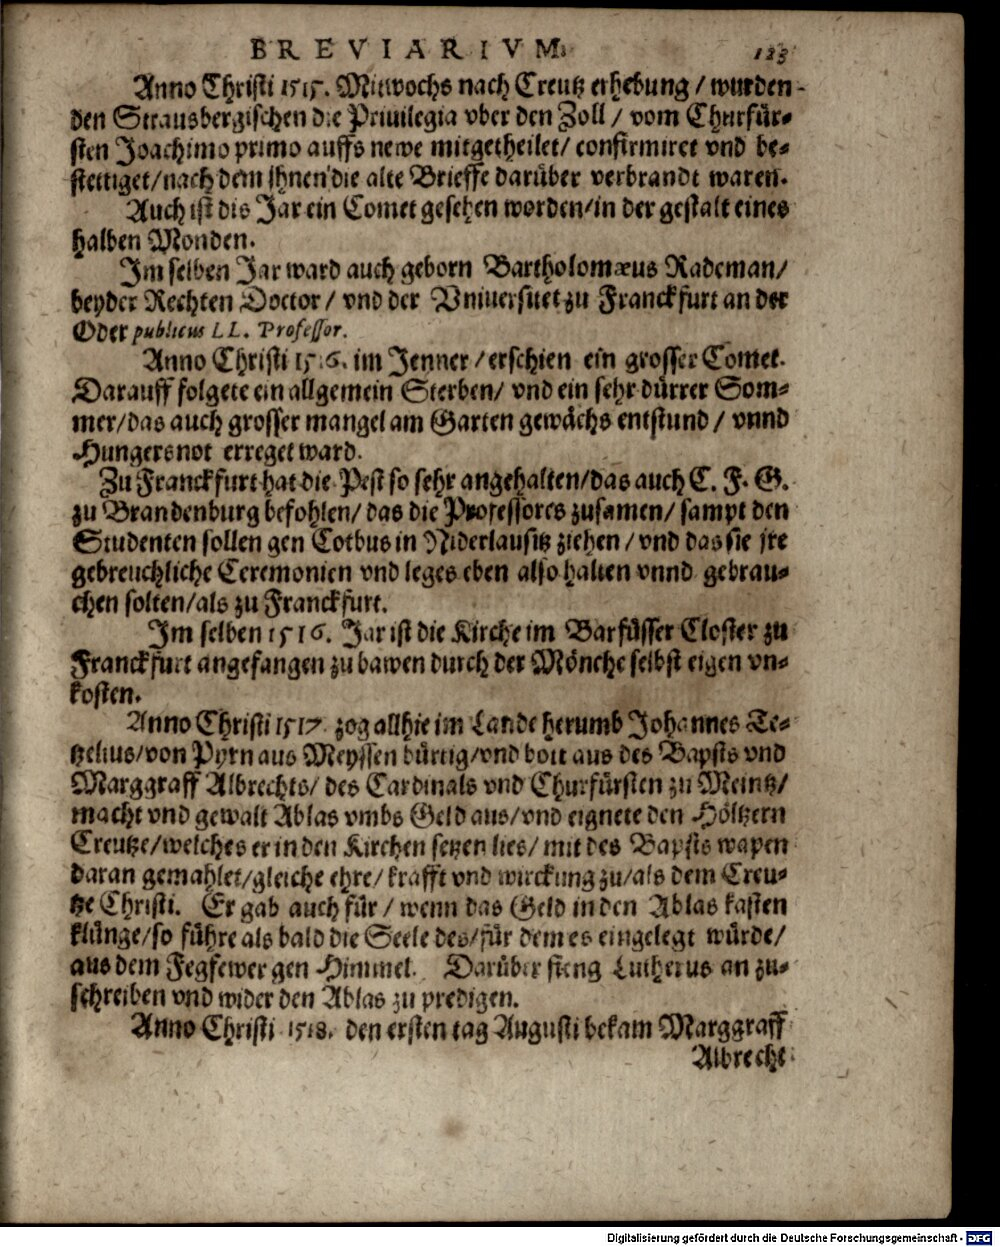 BREVIARIVM. 123
Anno Christi 1515. Mitwochs nach Creutz erhebung / wurden
den Strausbergischen die Priuilegia vber den Zoll / vom Churfür-
sten Joachimo primo auffs newe mitgetheilet/ confirmiret vnd be-
stettiget/nach dem ihnen die alte Brieffe darüber verbrandt waren.
Auch ist dis Jar ein Comet gesehen worden/in der gestalt eines
halben Monden.
Im selben Jar ward auch geborn Bartholomæus Rademan/
beyder Rechten Doctor / vnd der Vniuersitet zu Franckfurt an der
Oder publicus LL. Professor.
Anno Christi 1516. im Jenner /erschien ein grosser Comet.
Darauff folgete ein allgemein Sterben/ vnd ein sehr dürrer Som-
mer/das auch grosser mangel am Garten gewächs entstund / vnnd
Hungersnot erreget ward.
Zu Franckfurt hat die Pest so sehr angehalten/das auch C. F. G.
zu Brandenburg befohlen/ das die Professores zusamen/ sampt den
Studenten sollen gen Cotbus in Niderlausitz ziehen / vnd das sie jre
gebreuchliche Ceremonien vnd leges eben also halten vnnd gebrau-
chen solten/als zu Franckfurt.
Im selben 1516. Jar ist die Kirche im Barfüsser Closter zu
Franckfurt angefangen zu bawen durch der Mönche selbst eigen vn-
kosten.
Anno Christi 1517. zog allhie im Lande herumb Johannes Te-
tzelius/von Pyrn aus Meyssen bürtig/vnd bott aus des Bapsts vnd
Marggraff Albrechts/ des Cardinals vnd Churfürsten zu Meintz/
macht vnd gewalt Ablas vmbs Geld aus/vnd eignete den Höltzern
Creutze/welches er in den Kirchen setzen lies/ mit des Bapsts wapen
daran gemahlet/gleiche ehre/ krafft vnd wirckung zu/als dem Creu-
tze Christi. Er gab auch für / wenn das Geld in den Ablas kasten
klünge/so führe als bald die Seele des/für dem es eingelegt würde/
aus dem Fegfewer gen Himmel. Darüber fieng Lutherus an zu-
schreiben vnd wider den Ablas zu predigen.
Anno Christi 1518. den ersten tag Augusti bekam Marggraff
Albrecht
Digitalisierung gefördert durch die Deutsche Forschungsgemeinschaft - DFG